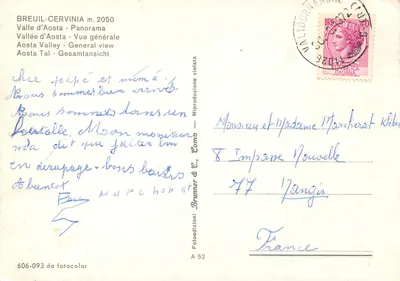 BREUIL-CERVINIA m. 2050
Valle d'Aosta - Panorama
Vallée d'Aosta - Vue générale
Aosta Valley - General view
Aosta Tal - Gesamtansicht
cher pépé et mémé.
Nous sommes bien arrivé
Nous sommes dans un
Mon moniteur
m'a dit que faire
en dérapage. bons baisers
Riproduzione vietata
Fotoedizioni Brunner & C., Como
A 52
606-093 da fotocolor
11028
Monsieur et Madame Marcherat
8 Impasse Nouvelle
77 Nangis
France